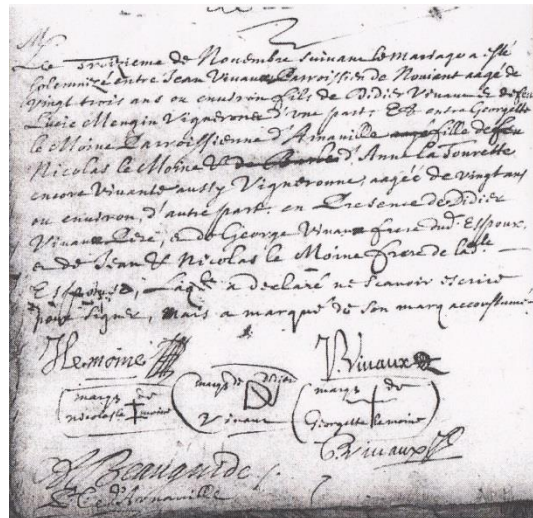 M
Le Troisieme de Novembre suivant le mariage a esté
solemnizé entre Jean Vinaux Parroissien de Noviant aagé de
vingt trois ans ou environ fils de Didier Vinaux et de feu
Lucie Mengin Vignerons d'une part; Et entre Georgette
le Moine Parroissienne d'Arnaville fille de feu
Nicolas le Moine & d'Anne la Tourette
encore vivante aussy Vigneronne, aagée de vingt ans
ou environ, d'autre part, en Presence de Didier
Vinaux Pere, & de George Vinaux frere dud. Espoux,
& de Jean & Nicolas le Moine frere de lad.
Espouse, Laqlle a declaré ne scavoir escrire
pour signer, mais a marqué de son marq accoustumé
JLemoine
JVivaux
marq de
nicolas le moine
marq de didier
Vinaux
marq de
Georgette lemoine
GVivaux
Beauguide
C. d'Arnaville